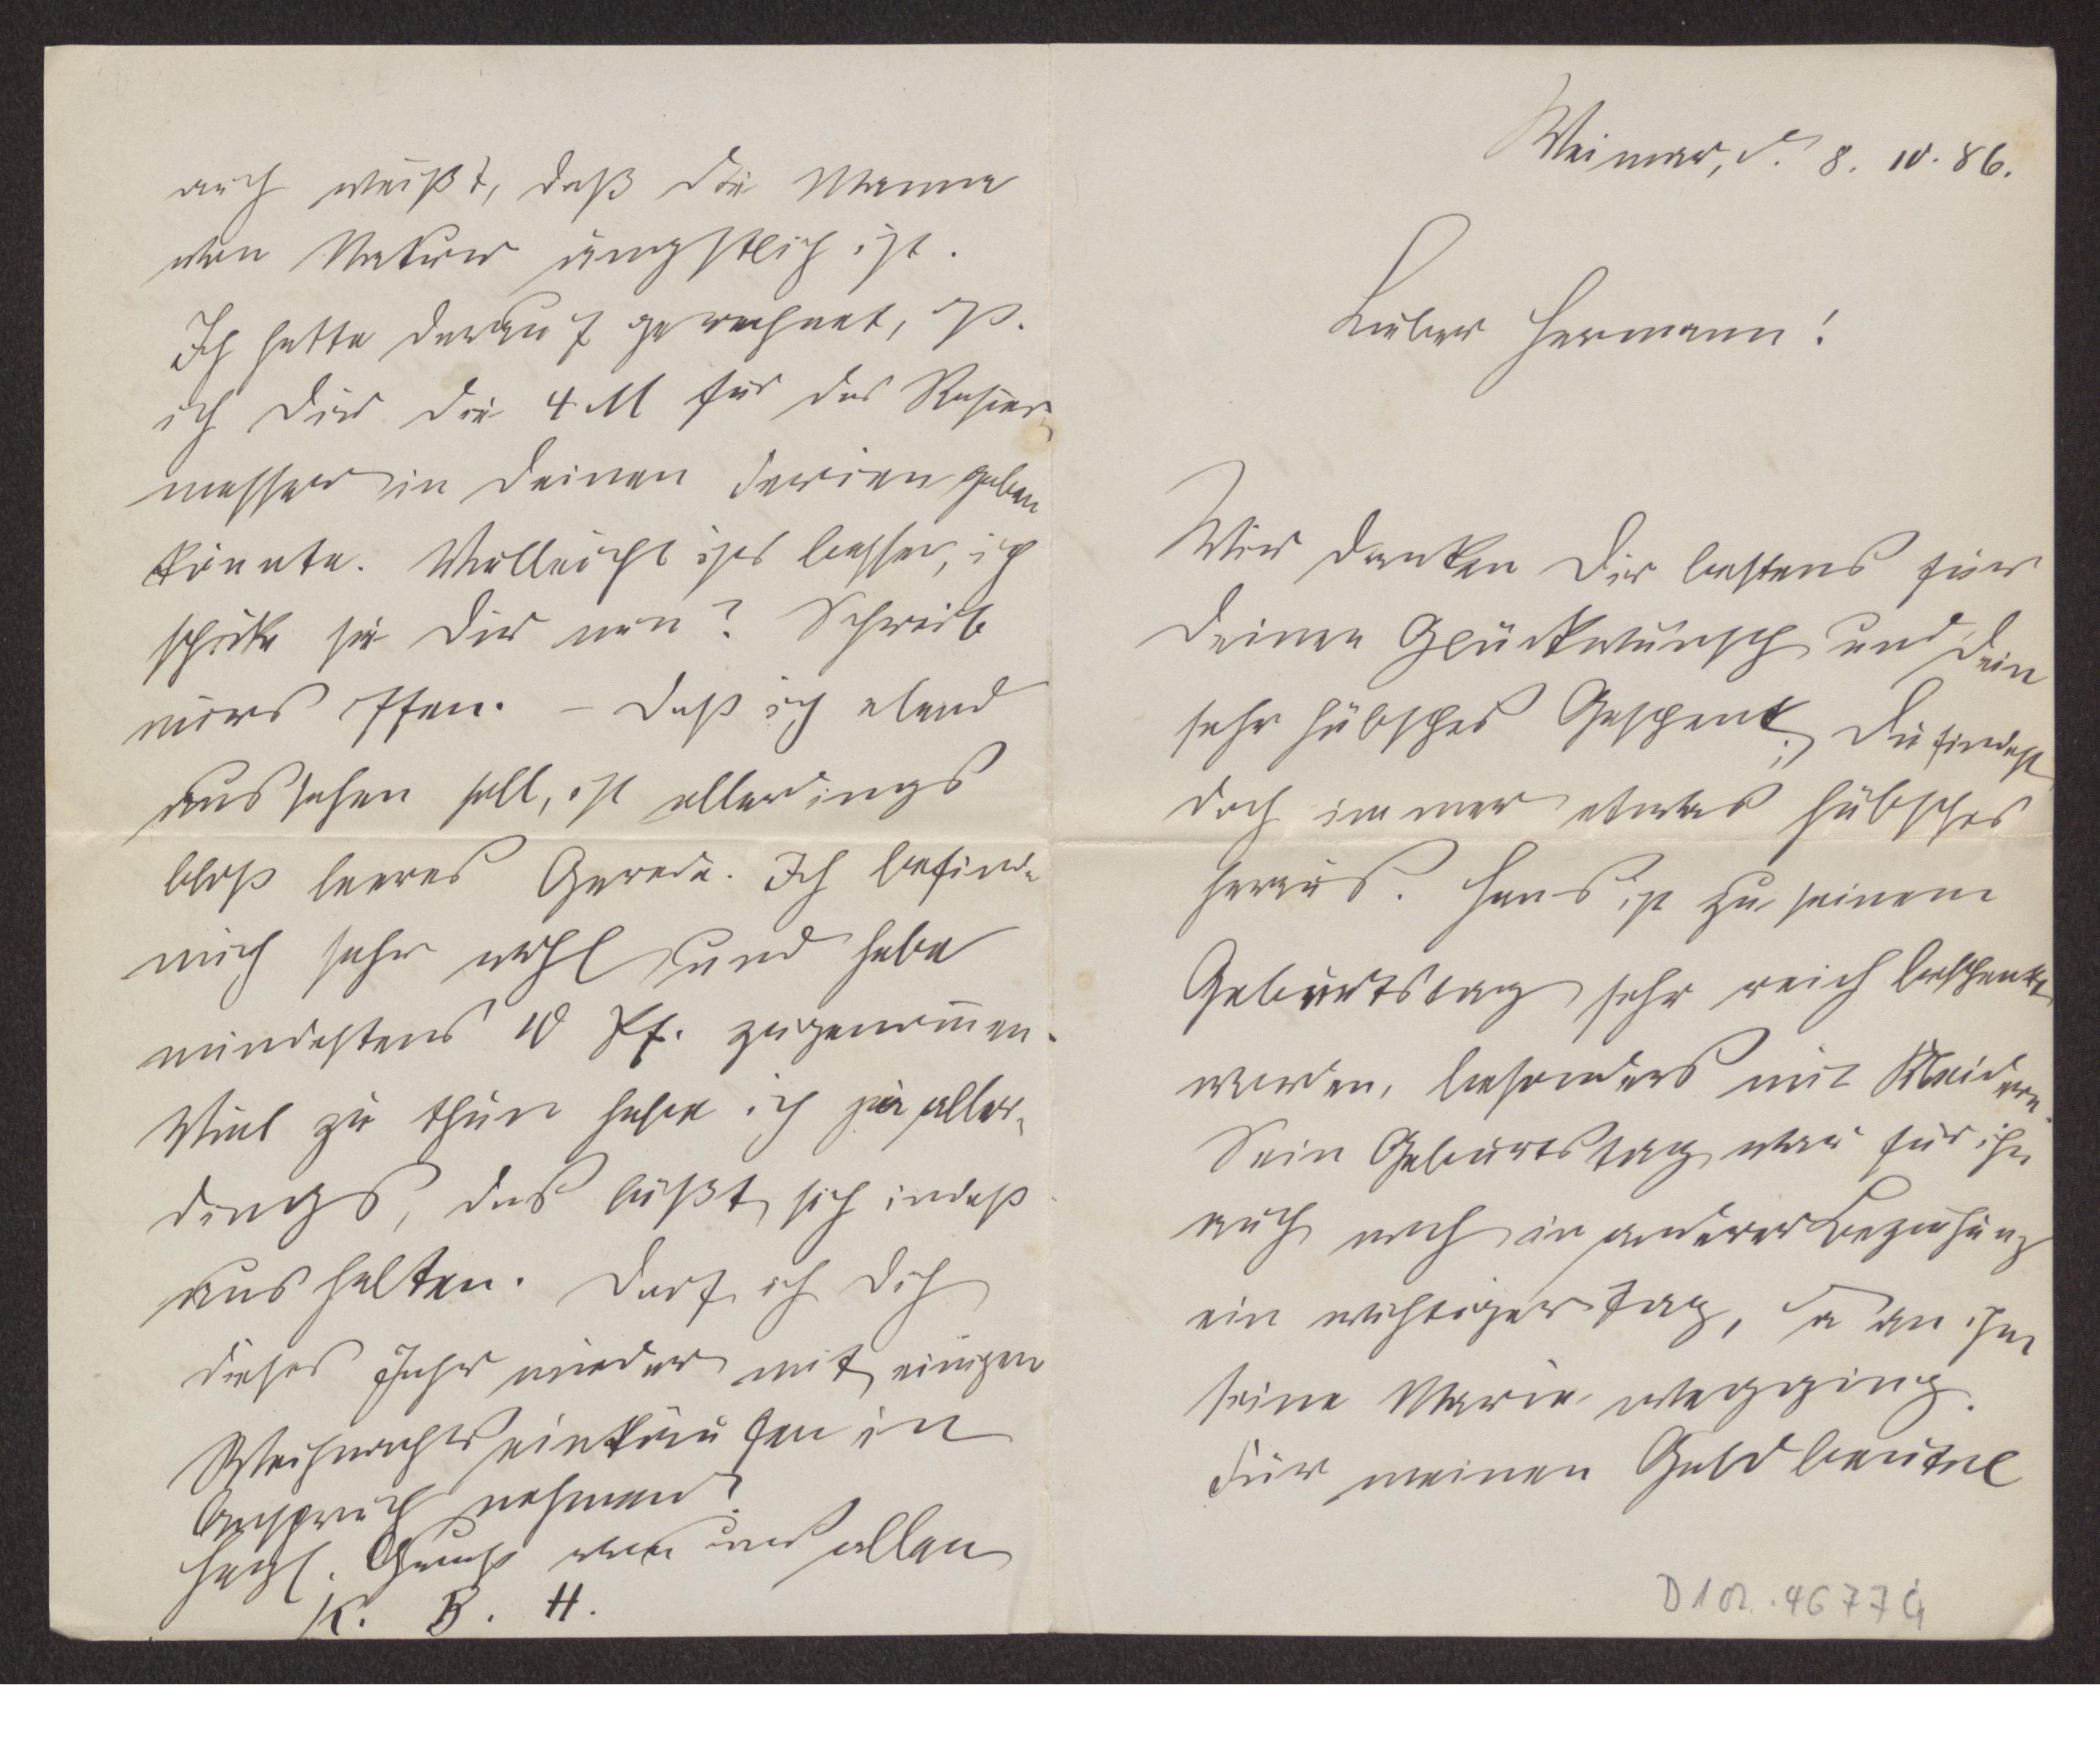 Weimar, d. 8. 10. 86.
Lieber Hermann!
Wir danken Dir bestens für
Deinen Glückwunsch und Dein
sehr hübsches Geschenk; Du findest
doch immer etwas hübsches
heraus. Hans ist zu seinem
Geburtstag sehr reich beschenkt
worden, besonders mit Kleidern.
Sein Geburtstag war für ihn
auch noch in anderer Beziehung
ein wichtiger Tag, da an ihm
seine Marie wegging.
Für meinen Geldbeutel
auch weißt, daß die Mama
von Natur ängstlich ist.
Ich hatte darauf gerechnet, ds.
ich Dir die 4 M für das Rasier-
messer in Deinen Ferien geben
könnte. Vielleicht ists besser, ich
schicke sie Dir nun? Schreib
mirs offen. – Daß ich elend
aussehen soll, ist allerdings
bloß leeres Gerede. Ich befinde
mich sehr wohl und habe
mindestens 10 Pf. zugenommen.
Viel zu thun habe ich ja aller-
dings, das läßt sich indeß
aushalten. Darf ich Dich
dieses Jahr wieder mit einigen
Weihnachtseinkäufen in
Anspruch nehmen?
Herzl. Gruß von uns allen
K. B. H.
D 102.4677